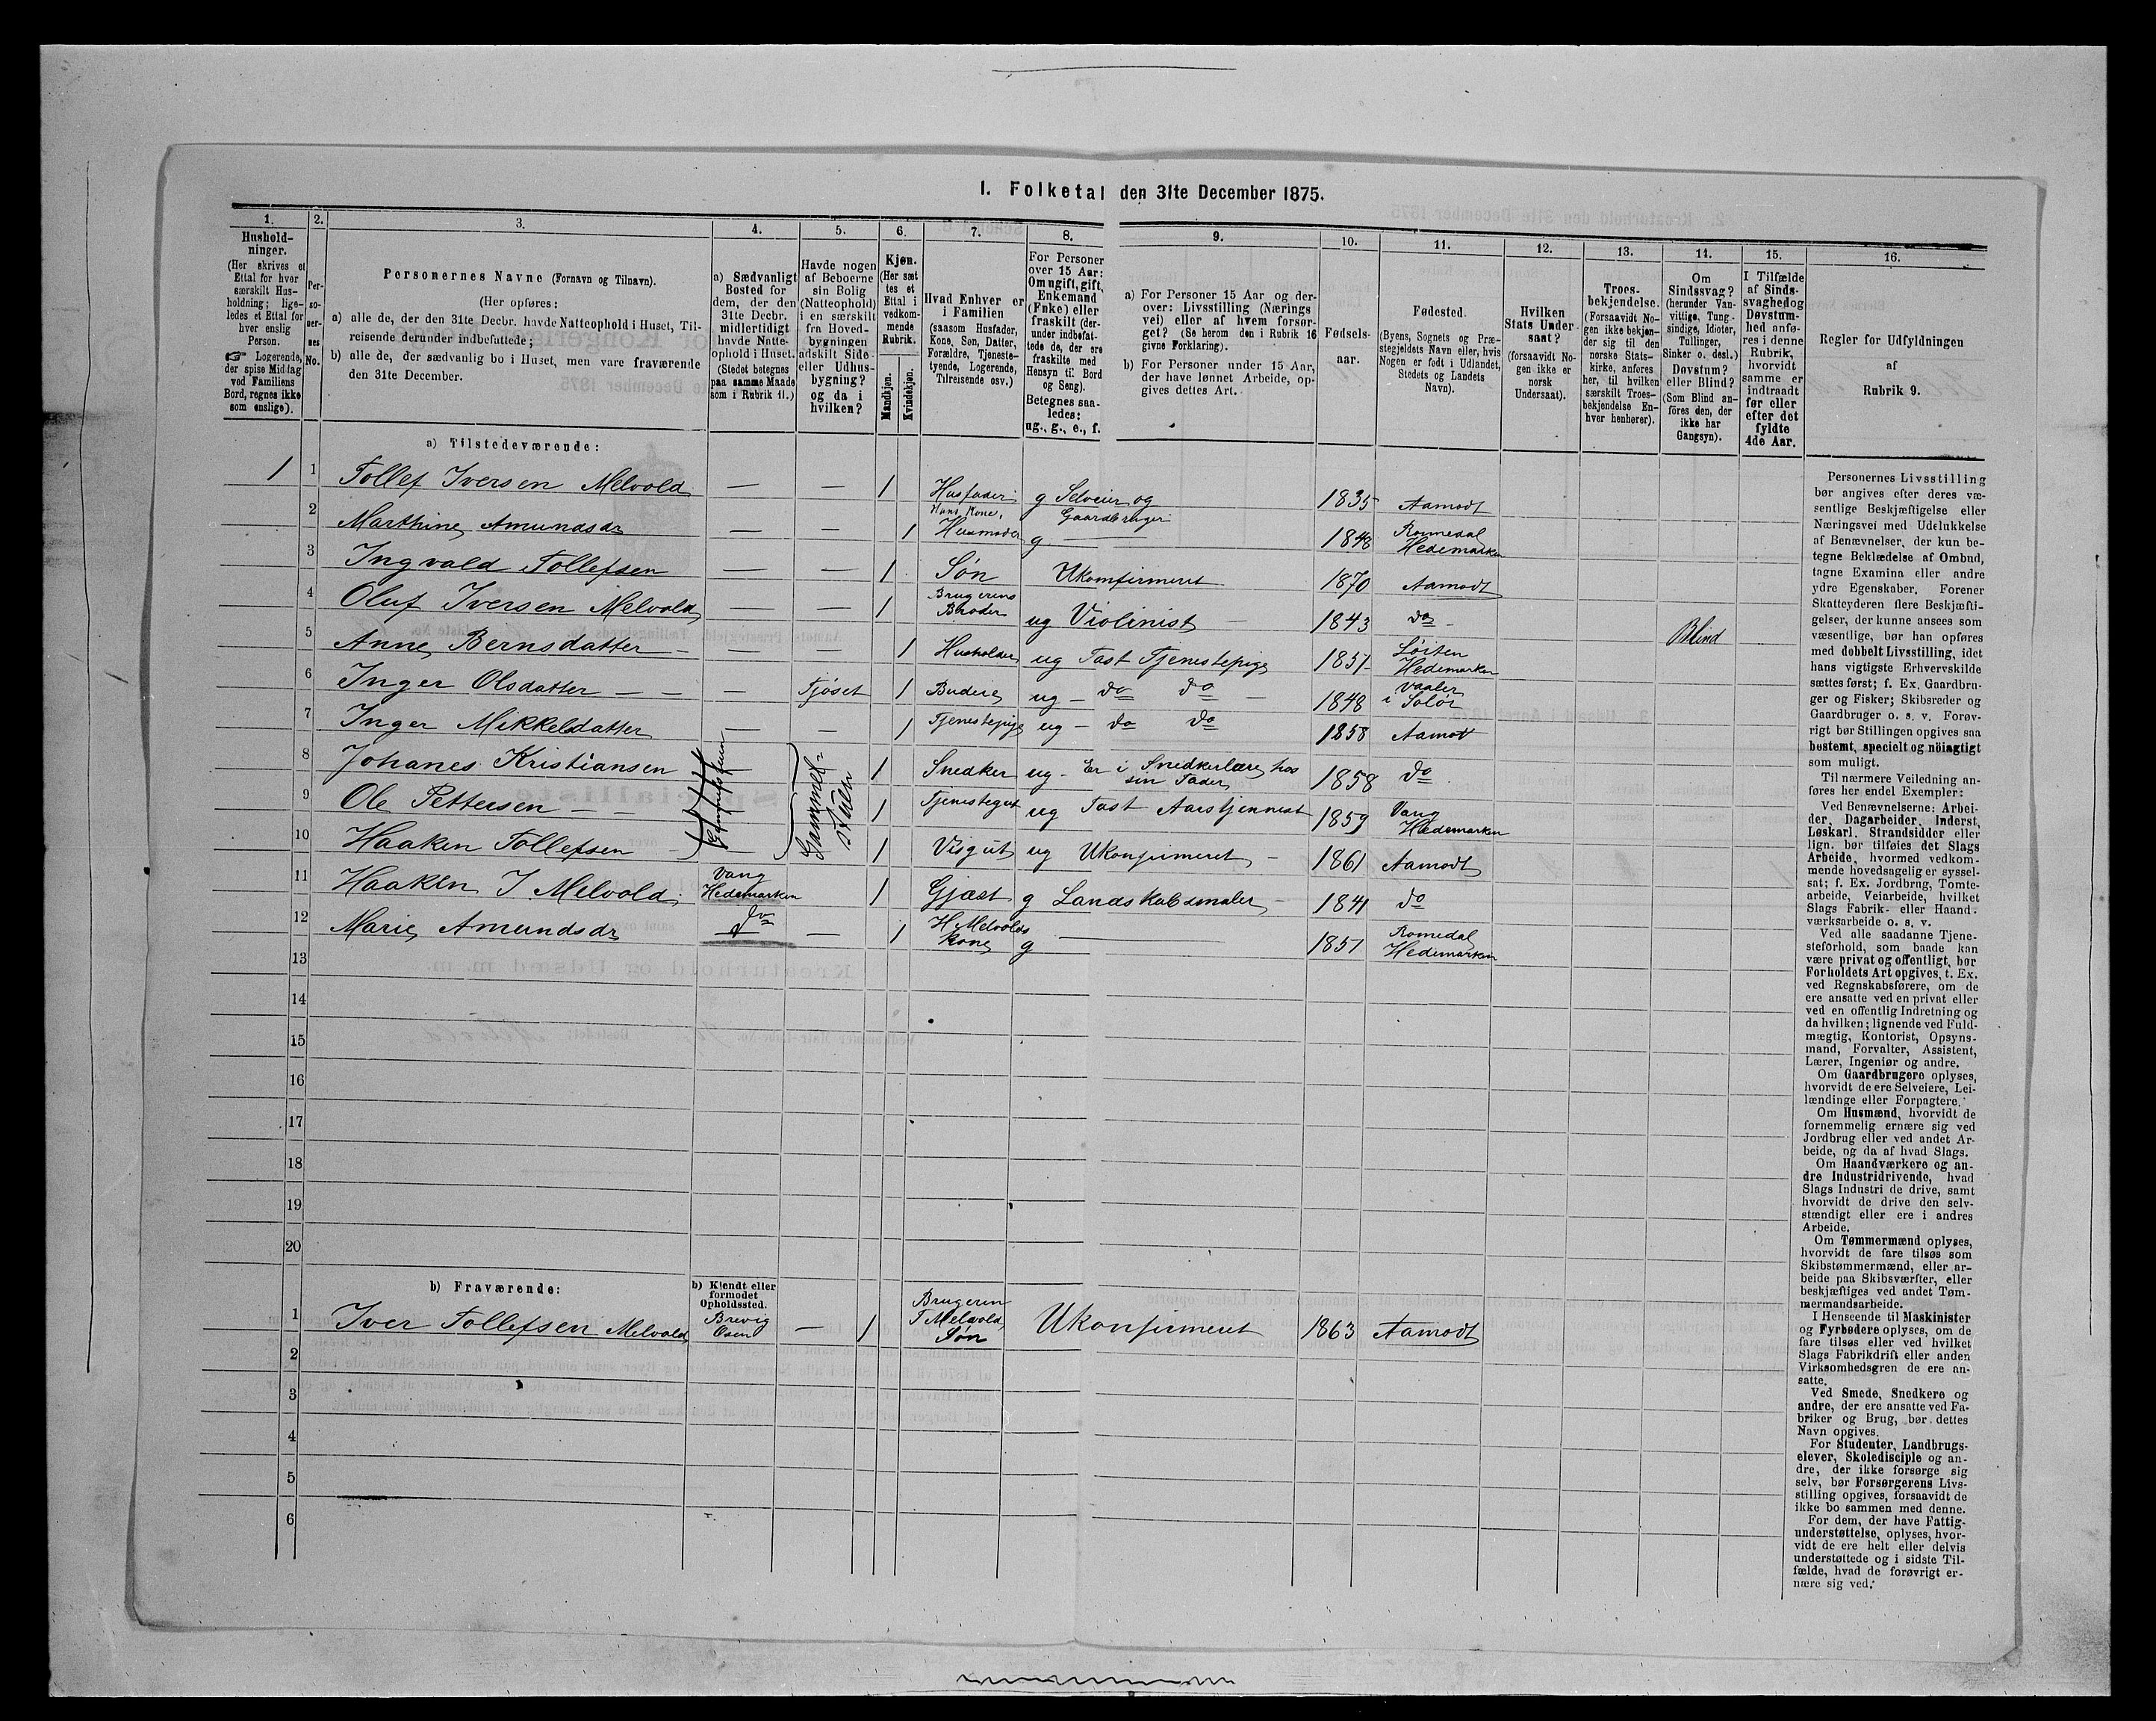 I. Folketal den 31te December 1875.
1. 2. 3. 4. 5. 6. 7. 8. 9. 10. 11. 12. 13. 14. 15. 16.
Hushold-
ninger.
(Her skrives et
Ettal for hver
særskilt Hus-
holdning; lige-
ledes et Ettal for
hver enslig
Person.
☞ Logerende,
der spise Middag
ved Familiens
Bord, regnes ikke
som enslige).
Per-
so-
ner-
nes
No.
Personernes Navne (Fornavn og Tilnavn).
(Her opføres:
a) alle de, der den 31te Decbr. havde Natteophold i Huset, Til-
reisende derunder indbefattede;
b) alle de, der sædvanlig bo i Huset, men vare fraværende
den 31te December.
a) Sædvanligt
Bosted for
dem, der den
31te Decbr.
midlertidigt
havde Natte-
ophold i Huset.
(Stedet betegnes
paa samme Maade
som i Rubrik 11.)
Havde nogen
af Beboerne
sin Bolig
(Natteophold)
i en særskilt
fra Hoved-
bygningen
adskilt Side-
eller Udhus-
bygning?
og da i
hvilken?
Kjøn.
(Her sæt
tes et
Ettal i
vedkom-
mende
Rubrik.
Mandkjøn.
Kvindekjøn.
Hvad Enhver er
i Familien
(saasom Husfader,
Kone, Søn, Datter,
Forældre, Tjeneste-
tyende, Logerende,
Tilreisende osv.)
For Personer
over 15 Aar:
Om ugift, gift,
Enkemand
(Enke) eller
fraskilt (der-
under indbefat-
tede de, der ere
fraskilte med
Hensyn til Bord
og Seng).
Betegnes saa-
ledes:
ug., g., e., f.
a) For Personer 15 Aar og der-
over: Livsstilling (Nærings
vei) eller af hvem forsør-
get? (Se herom den i Rubrik 16
givne Forklaring).
b) For Personer under 15 Aar,
der have lønnet Arbeide, op-
gives dettes Art.
Fødsels-
aar.
Fødested.
(Byens, Sognets og Præ-
stegjeldets Navn eller, hvis
Nogen er født i Udlandet,
Stedets og Landets
Navn).
Hvilken
Stats Under-
saat?
(forsaavidt No-
gen ikke er
norsk
Undersaat).
Troes-
bekjendelse.
(Forsaavidt No-
gen ikke bekjen-
der sig til den
norske Stats-
kirke, anføres
her, til hvilken
særskilt Troes-
bekjendelse En-
hver henhører).
Om
Sindssvag?
(herunder Van-
vittige, Tung-
sindige, Idioter,
Tullinger,
Sinker o. desl.)
Døvstum?
eller Blind?
(Som Blind an-
föres den, der
ikke har
Gangsyn).
I Tilfælde
af Sinds-
svaghed og
Døvstum-
hed anfø-
res i denne
Rubrik,
hvorvidt
samme er
indtraadt
før eller
efter det
fyldte
4de Aar.
Regler for Udfyldningen
af
Rubrik 9.
a) Tilstedeværende:
1 1 Tollef Iversen Melvold — — 1 Husfader g Selveier og Gaardbruger 1835 Aamodt
2 Marthine Amundsdr — — 1 Hans Kone, Husmoder g — 1848 Romedal Hedemarken
3 Ingvald Tollefsen — — 1 Søn Ukonfirmeret 1870 Aamodt
4 Oluf Iversen Melvold — — 1 Brugerens Broder ug Violinist — 1843 do - Blind
5 Anne Bernsdatter - — — 1 Husholder ug Fast Tjenestepige 1851 Løiten Hedemarken
6 Inger Olsdatter — — — Fjöset 1 Budeie ug - do do — 1848 Vaaler i Solör
7 Inger Mikkelsdatter — — 1 Tjenestepige ug - do do 1858 Aamot
8 Johanes Kristiansen Gammel- stuen 1 Snedker ug - Er i Snedkerlære hos sin Fader 1858 do
9 Ole Pettersen — — 1 Tjenestegut ug Fast Aarstjennest 1859 Vang Hedemarken
10 Haaken Tollefsen — 1 Visgut ug Ukonfirmeret — 1861 Aamodt
11 Haaken I Melvold. Vang Hedemarken 1 Gjæst g Landskabsmaler — 1841 do
12 Marie Amundsdr do — 1 H Melvolds Kone g — 1851 Romedal Hedemarken
13
14
15
16
17
18
19
20
b) Fraværende:
b) Kjendt eller
formodet
Opholdssted.
1 Iver Tollefsen Melvold Brevig Osen — 1 Brugeren T Melvold, Søn Ukonfirmeret 1863 Aamodt
2
3
4
5
6
Personernes Livsstilling
bør angives efter deres væ-
sentlige Beskjæftigelse eller
Næringsvei med Udelukkelse
af Benævnelser, der kun be-
tegne Beklædelse af Ombud,
tagne Examina eller andre
ydre Egenskaber. Forener
Skatteyderen flere Beskjæfti-
gelser, der kunne ansees som
væsentlige, bør han opføres
med dobbelt Livsstilling, idet
hans vigtigste Erhvervskilde
sættes først; f. Ex. Gaardbru-
ger og Fisker; Skibsreder og
Gaardbruger o. s. v. Forøv-
rigt bør Stillingen opgives saa
bestemt, specielt og nöiagtigt
som muligt.
Til nærmere Veiledning an-
føres her endel Exempler:
Ved Benævnelserne: Arbei-
der, Dagarbeider, Inderst,
Løskarl, Strandsidder eller
lign. bør tilføies det Slags
Arbeide, hvormed vedkom-
mende hovedsagelig er syssel-
sat; f. Ex. Jordbrug, Tomte-
arbeide, Veiarbeide, hvilket
Slags Fabrik- eller Haand-
værksarbeide o. s. v.
Ved alle saadanne Tjene-
steforhold, som baade kan
være privat og offentligt, bør
Forholdets Art opgives, t. Ex.
ved Regnskabsførere, om de
ere ansatte ved en privat eller
ved en offentlig Indretning og
da hvilken; lignende ved Fuld-
mægtig, Kontorist, Opsyns-
mand, Forvalter, Assistent,
Lærer, Ingeniør og andre.
Om Gaardbrugere oplyses,
hvorvidt de ere Selveiere, Lei-
lændinge eller Forpagtere.
Om Husmænd, hvorvidt de
fornemmelig ernære sig ved
Jordbrug eller ved andet Ar-
beide, og da af hvad Slags.
Om Haandværkere og an-
dre Industridrivende, hvad
Slags Industri de drive, samt
hvorvidt de drive den selv-
stændigt eller ere i andres
Arbeide.
Om Tømmermænd oplyses,
hvorvidt de fare tilsøs som
Skibstømmermænd, eller ar-
beide paa Skibsværfter, eller
beskjæftiges ved andet Tøm-
mermandsarbeide.
I Henseende til Maskinister
og Fyrbødere oplyses, om de
fare tilsøs eller ved hvilket
Slags Fabrikdrift eller anden
Virksomhedsgren de ere an-
satte.
Ved Smede, Snedkere og
andre, der ere ansatte ved Fa-
briker og Brug, bør dettes
Navn opgives.
For Studenter, Landbrugs-
elever, Skoledisciple og an-
dre, der ikke forsørge sig
selv, bør Forsørgerens Livs-
stilling opgives, forsaavidt de
ikke bo sammen med denne.
For dem, der have Fattig-
understøttelse, oplyses, hvor-
vidt de ere helt eller delvis
understøttede og i sidste Til-
fælde, hvad de forøvrigt er-
nære sig ved.